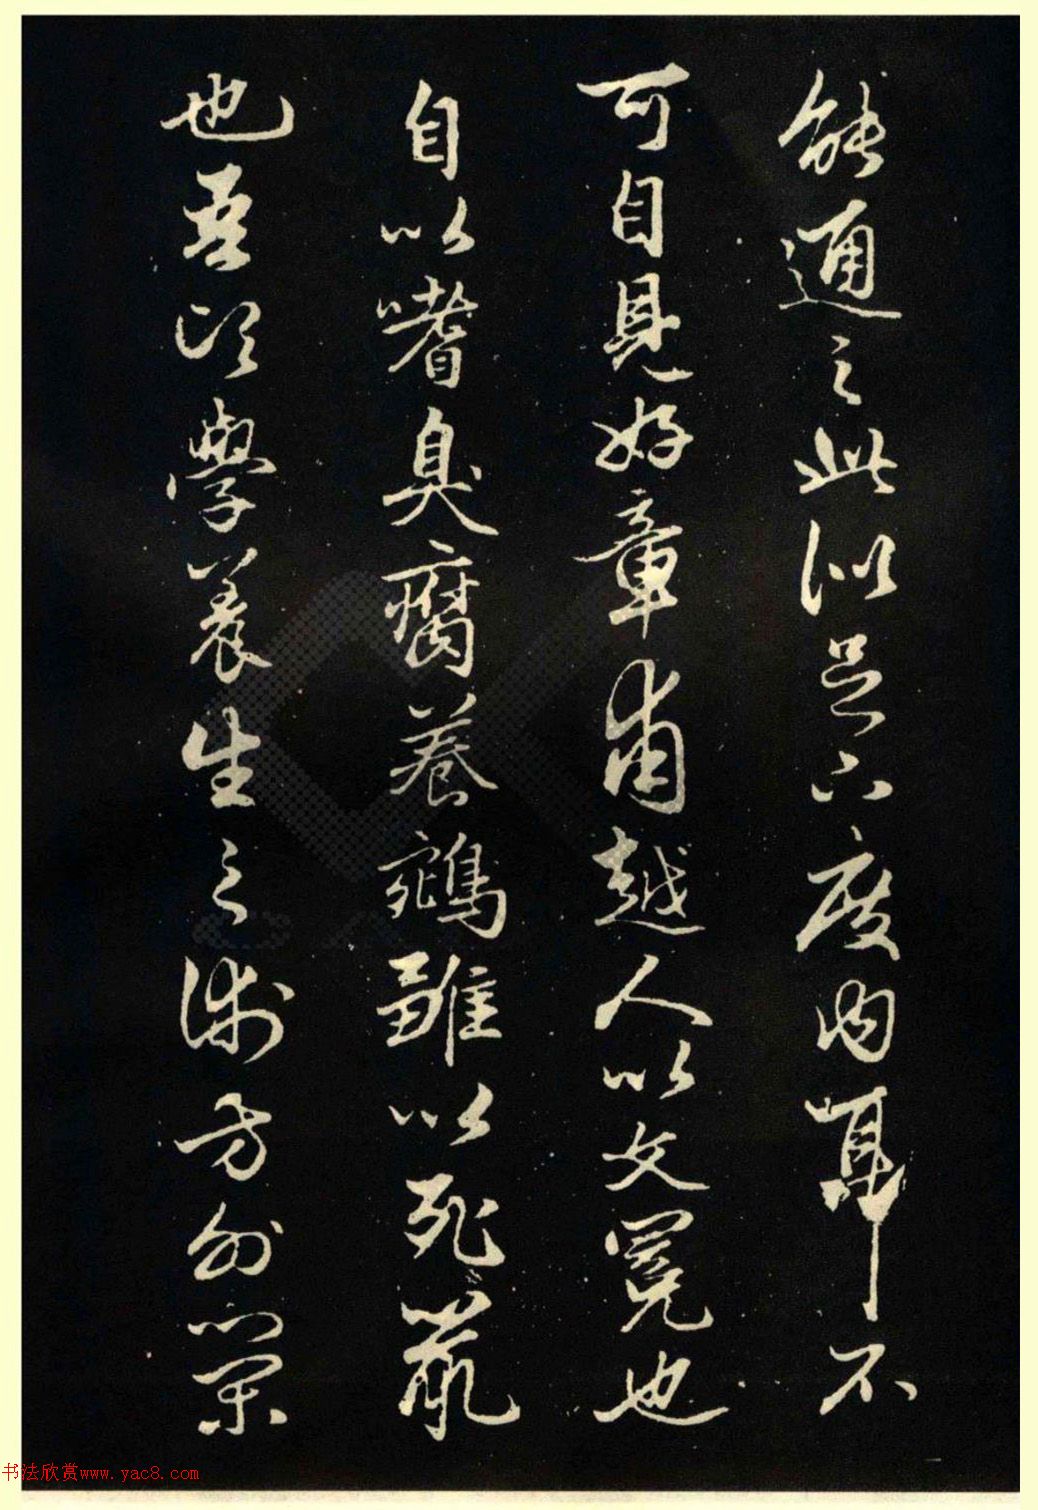 能通之此似足下度内耳不
可自見好章甫越人以文冕也
自以嗜臭腐養鵷雛以死鼠
也吾頃學養生之術方外榮
书法欣赏www.yac8.com